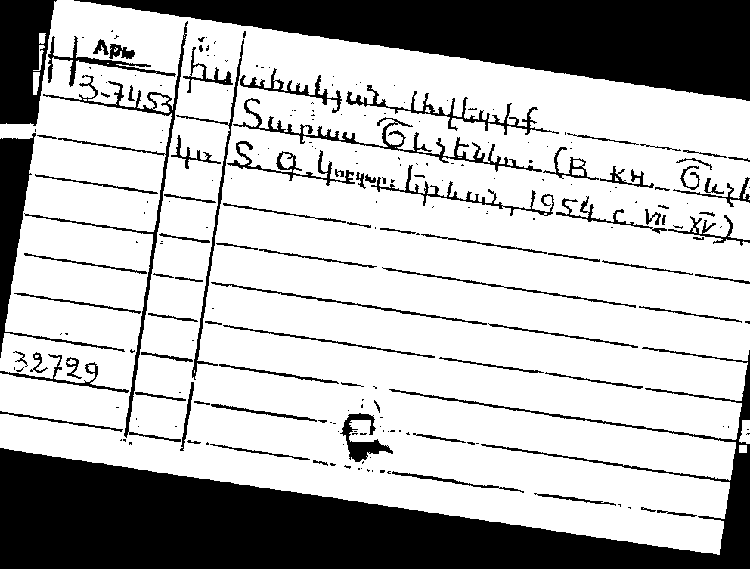 Арм
3-7453
Իսահակյան, Ավետիք
Տարաս Շևչենկո: (В кн. Շևչ
կո Տ. Գ. Կոբզար: Երևան, 1954 с. VII-XV).
32729